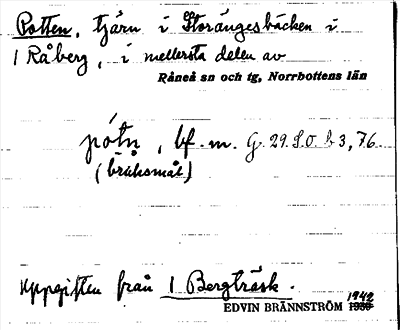 Potten, tjärn i Storängesbäcken i
1 Råberg, i mellersta delen av
Råneå sn och tg, Norrbottens län
pótn, bf. m. G. 29. S.O. b 3, 76
(bruksmål)
Uppgiften från 1 Bergträsk.
EDVIN BRÄNNSTRÖM 1942
1930